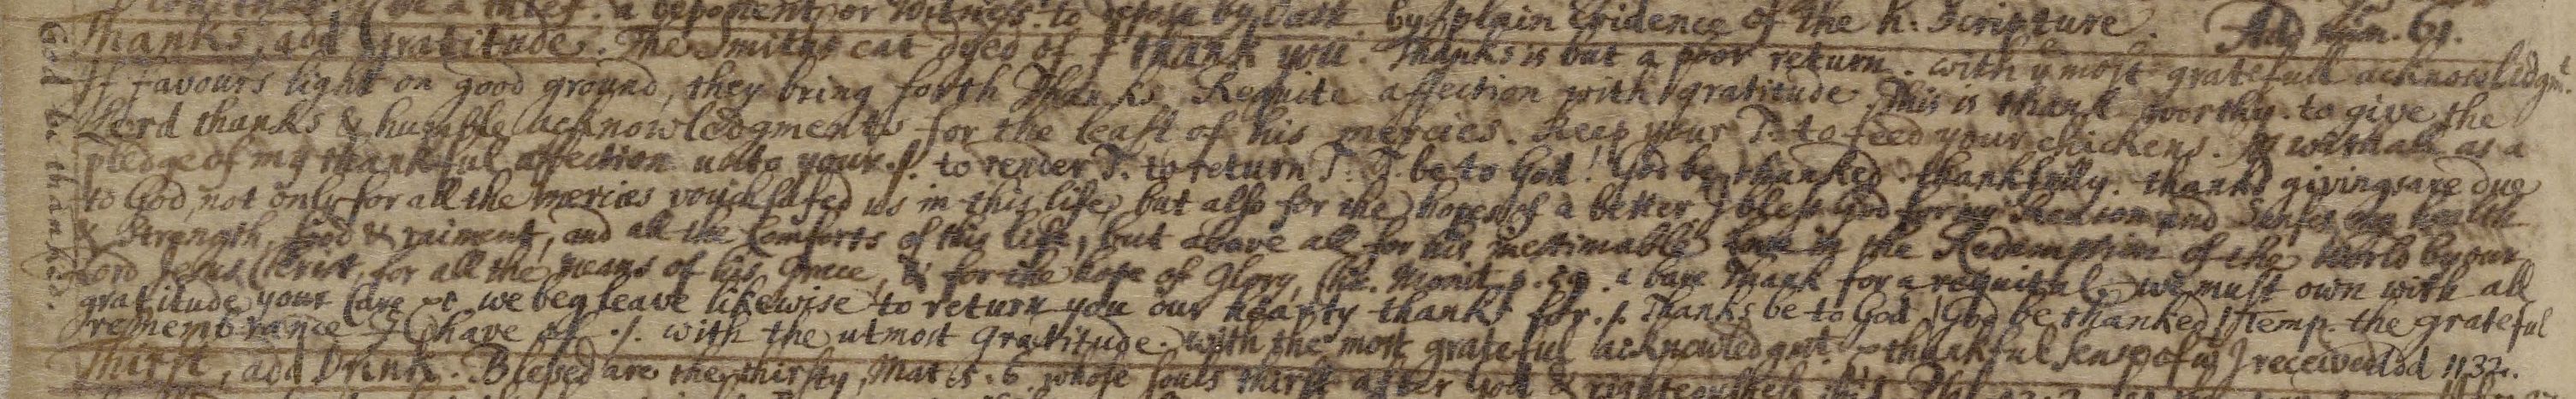 a deponent or Witness. to depose by Oath. by plain Evidence of the h. Scripture. Add Num. 61.
Thanks, add Gratitude. The Smiths cat dyed of I thank you. Thanks is but a poor return. with ye most gratefull acknowledgmt.
If favours light on good ground, they bring forth Thanks. Requite affection with gratitude. This is thank worthy. to give the
Lord thanks & humble acknowledgments for the least of his mercies. Keep your T. to feed your chickens. withall as a
pledge of my thankful affection unto your ./. to render T. to return T. T. be to God! God be thanked. thankfully. thanksgivings are due
to God, not only for all the mercies vouchsafed us in this life, but also for the hopes of a better. I bless God for my and Senses health
& Strength, food & raiment, and all the Comforts of this life, but above all for his inestimable love in the Redemption of the World by our
Lord Jesus Christ, for all the means of his Grace, & for the hope of Glory, Monit. p. a bare Thank for a requital. we must own with all
gratitude your Care we beg leave likewise to return you our hearty thanks for ./. Thanks be to God! God be thanked! Temp. the grateful
remembrance I have of ./. with the utmost Gratitude. with the most grateful acknowledgmt. thankful Sense of I received 1132.
Thirst, add Drink. Blessed are the thirsty, Mat. 5. 6. whose souls thirst after God & righteousness
God be thanked.